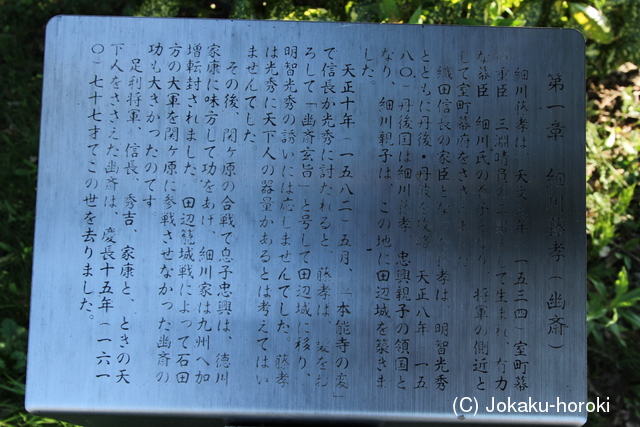 第一章　細川藤孝(幽斎)
細川藤孝は、天文三年(一五三四)室町幕
府重臣　三淵晴員の二男として生まれ、有力
な幕臣　細川氏の
して室町幕府をささ
織田信長の家臣とな　孝は、明智光秀
とともに丹後・丹波を攻略　天正八年(一五
八〇)丹後国は細川藤孝　忠興親子の領国と
なり、細川親子は、この地に田辺城を築きま
した。
天正十年(一五八二)五月、「本能寺の変」
で信長が光秀に討たれると、藤孝は、髪をお
ろして「幽斎玄旨」と号して田辺城に移り、
明智光秀の誘いには応じませんでした。藤孝
は光秀に天下人の器量があるとは考えてはい
ませんでした。
その後、関ヶ原の合戦で息子忠興は、徳川
家康に味方して功をあげ、細川家は九州へ加
増転封されました。田辺籠城戦によって石田
方の大軍を関ヶ原に参戦させなかった幽斎の
功も大きかったのです。
足利将軍、信長、秀吉、家康と、ときの天
下人をささえた幽斎は、慶長十五年(一六一
〇)七十七才でこの世を去りました。
(C) Jokaku-horoki